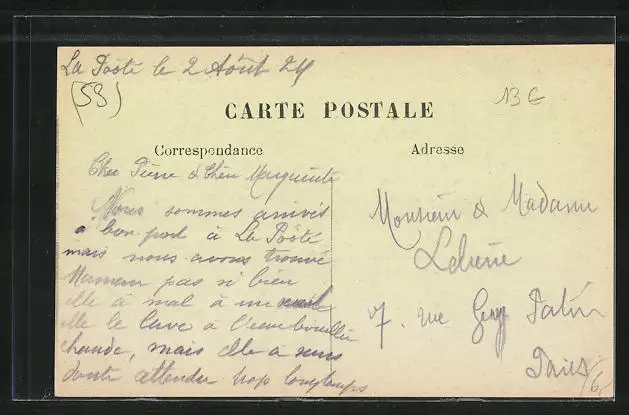 La Pôôté le 2 Août 24
(53)
13 €
CARTE POSTALE
Correspondance
Adresse
Cher Pierre & Chère Marguerite
Nous sommes arrivés
à bon port à La Pôôté
mais nous avons trouvé
Maman pas si bien
elle a mal à un
elle le lave à l'eau bouillie
chaude, mais elle a sans
doute attendu trop longtemps
Monsieur & Madame
7. rue Guy Patin
Paris